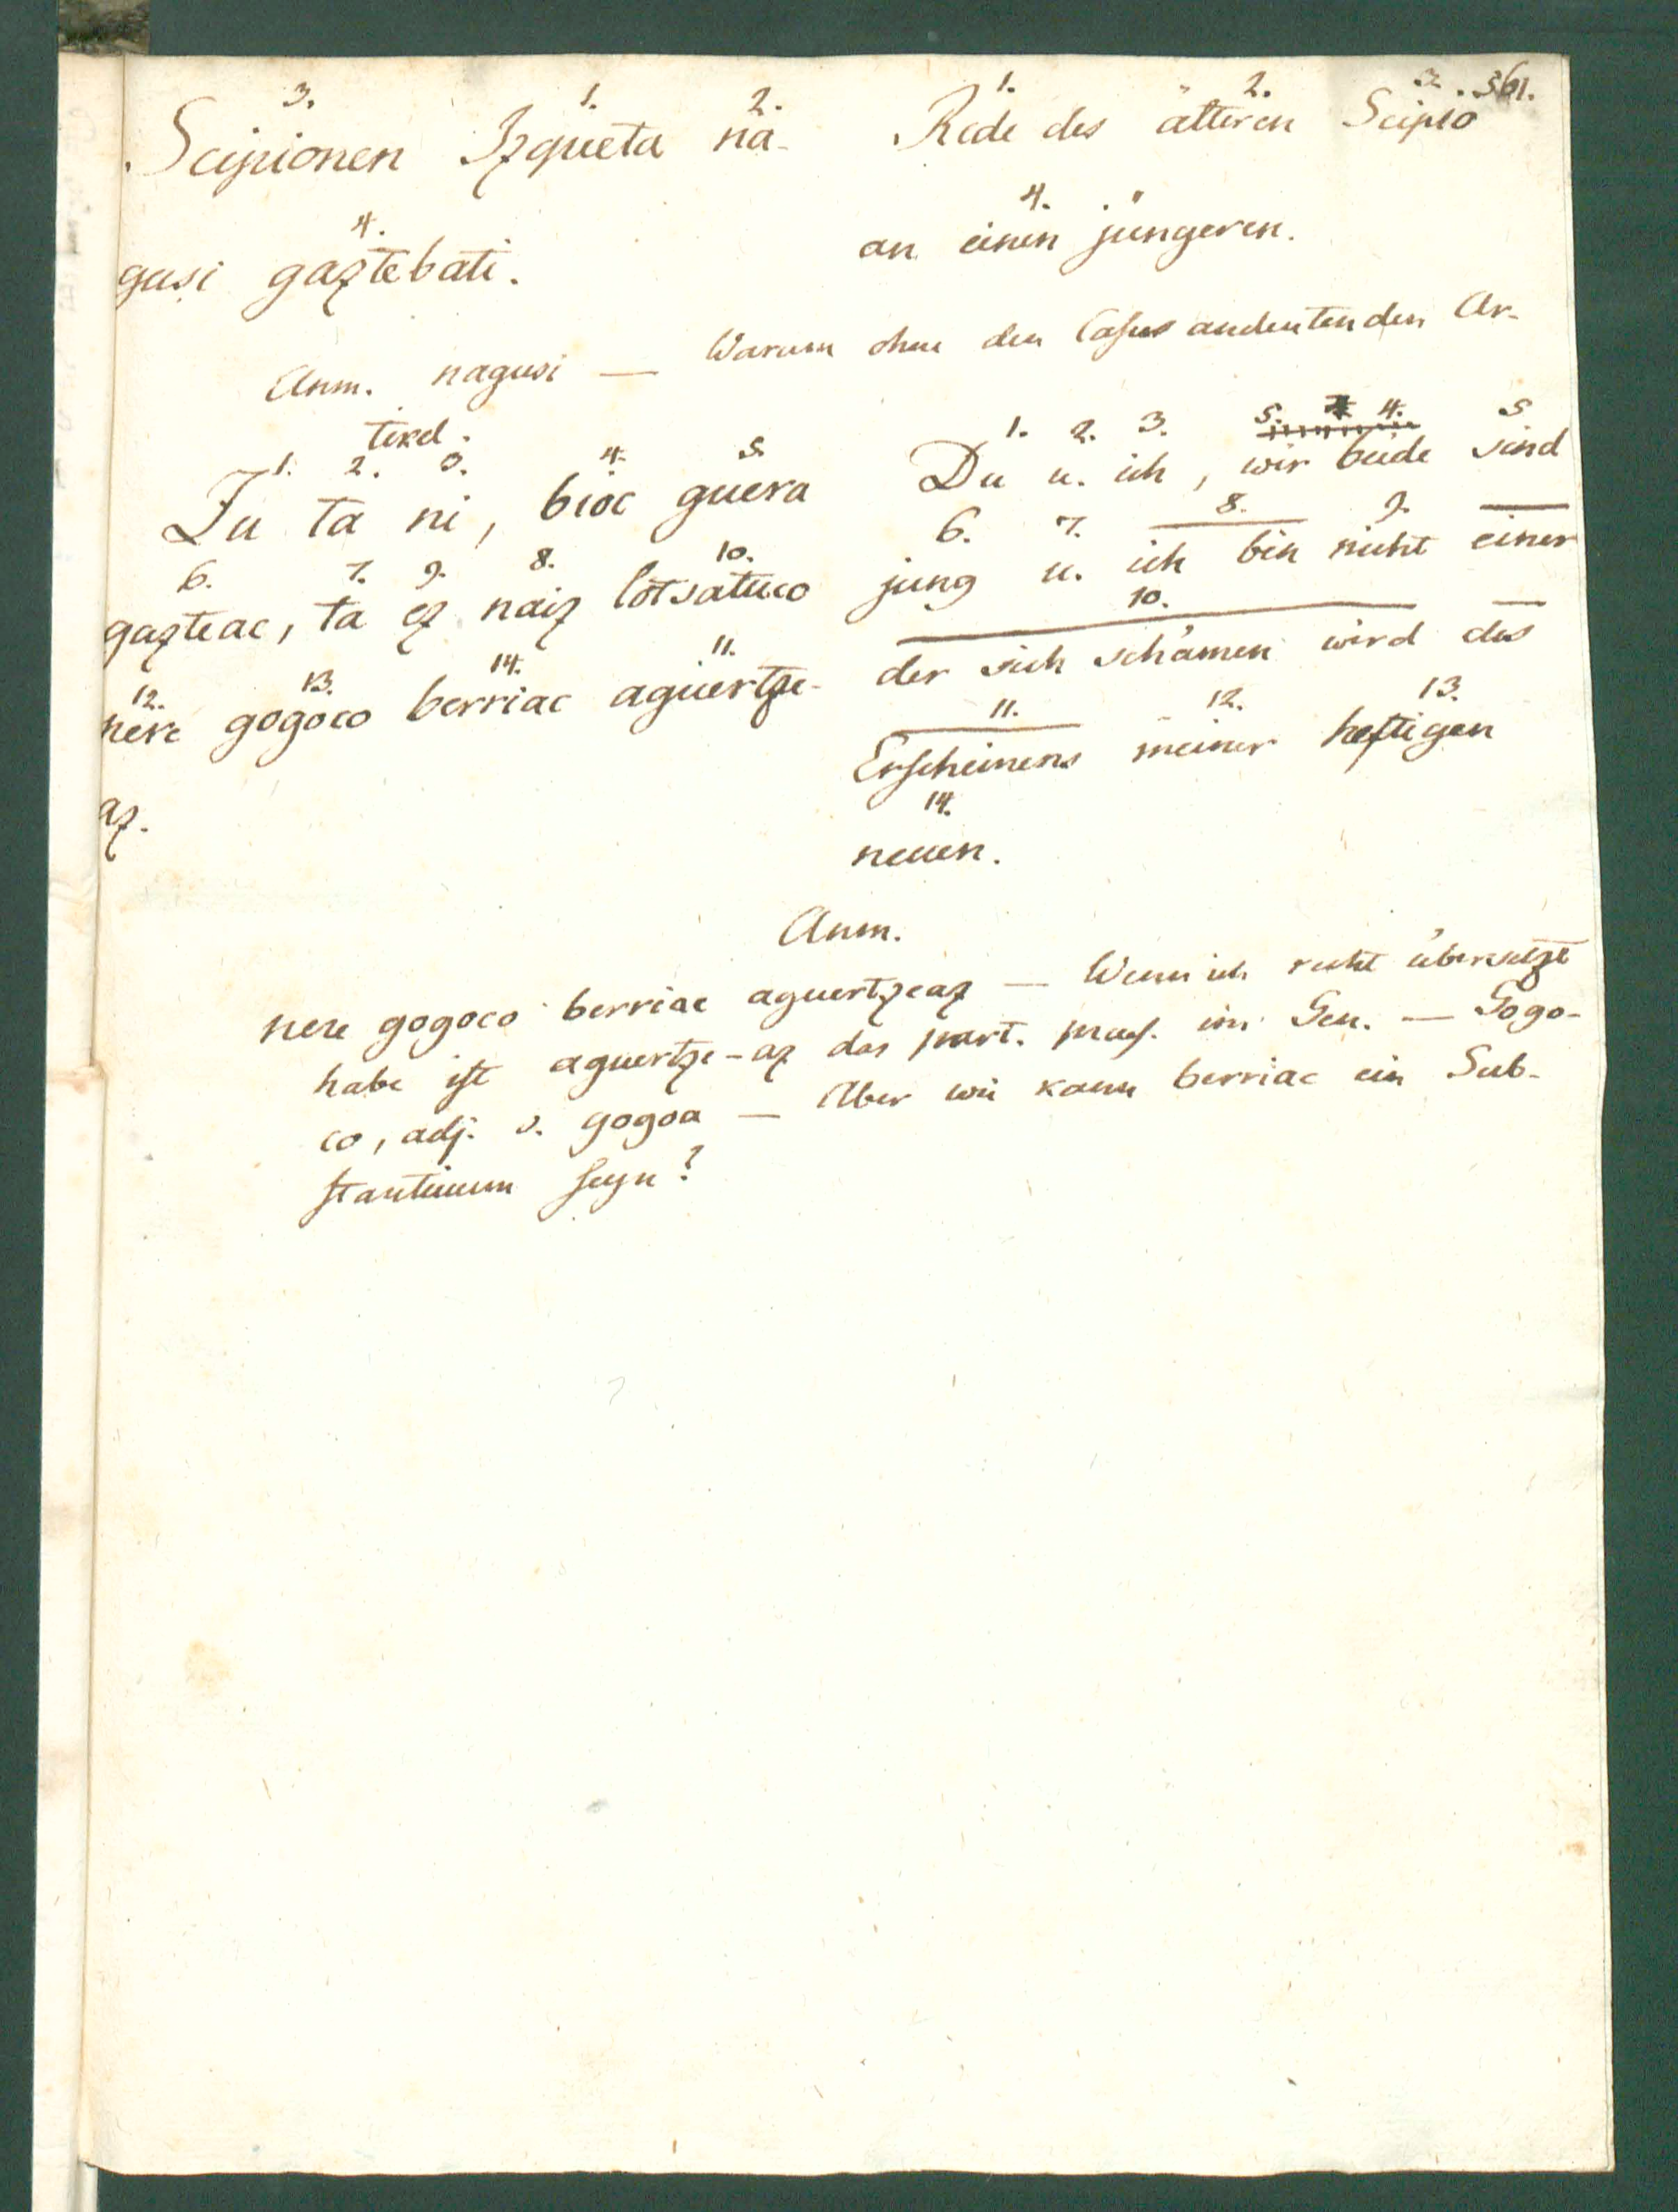 361.
3. 1. 2.
Scipionen Izqueta na-
4.
gusi gaztebati.
1. 2. 3.
Rede des ältteren Scipio
4.
an einen jüngeren.
Anm. nagusi — Warum ohne den Casus andeutenden Ar-
tikel.
1. 2. 3. 4. 5.
Zu ta ni, bioc guera
6. 7. 9. 8. 10.
gazteac, ta ez naiz lotsatuco
12. 13. 14. 11.
nere gogoco berriac aguertze-
az.
1. 2. 3. 4. 5
Du u. ich, wir beide sind
6. 7. 8. 9.
jung u. ich bin nicht einer
10.
der sich schämen wird des
11. 12. 13.
Erscheinens meiner heftigen
14.
neuen.
Anm.
nere gogoco berriac aguertzeaz — Wenn ich recht übersetzt
habe ist aguertze-az das part. praes. im Gen. — Gogo-
co, adj. v. gogoa — Aber wie kann berriac ein Sub-
stantivum seyn?